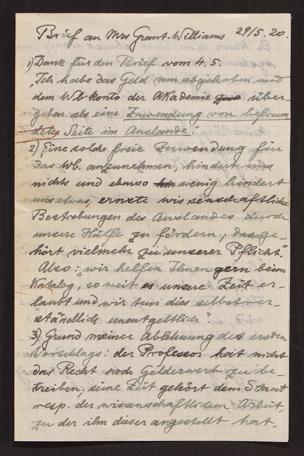 Brief an Mrs Grant-Williams 29/5.20.
1) Dank für den Brief vom 4.5.
"Ich habe das Geld nun abgehoben und
dem Wb konto der Akademie über-
geben als eine Zuwendung von befreun-
deter Seite im Auslande."
2) "Eine solche freie Zuwendung für
das Wb. anzunehmen, hindert uns
nichts und ebenso wenig hindert
uns etwas, ernste wissenschaftliche
Bestrebungen des Auslandes durch
unsere Hülfe zu fördern, das ge-
hört vielmehr zu unserer Pflicht."
Also: "wir helfen Ihnen gern beim
Katalog, so weit es unsere Zeit er-
laubt und wir tun dies selbstver-
ständlich unentgeltlich"
3) Grund meiner Ablehnung des ersten
Vorschlags: der Professor hat nicht
das Recht nach Gelderwerb zu be-
treiben, seine Zeit gehört dem Staat
resp. der wissenschaftlichen Arbeit,
zu der ihn dieser angestellt hat.